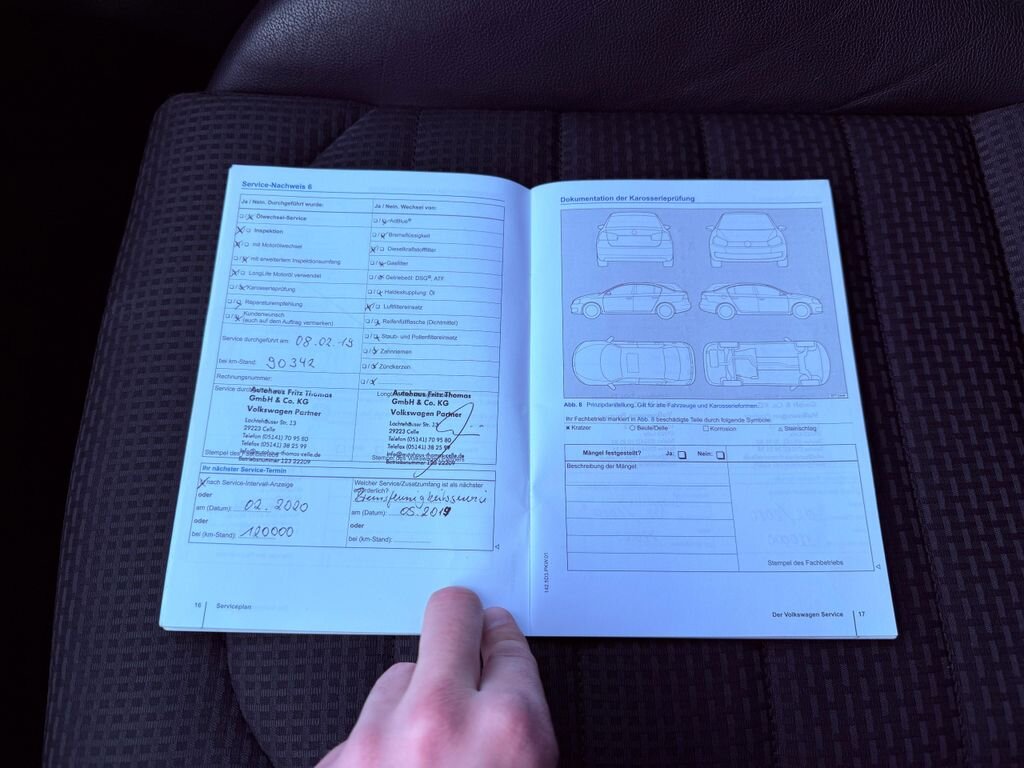 Service-Nachweis 6
Ja / Nein. Durchgeführt wurde:
Ölwechsel-Service
Inspektion
mit Motorölwechsel
mit erweitertem Inspektionsumfang
LongLife Motoröl verwendet
Karosserieprüfung
Reparaturempfehlung
Kundenwunsch
(auch auf dem Auftrag vermerken)
Service durchgeführt am: 08.02.19
bei km-Stand: 90342
Rechnungsnummer:
Ja / Nein. Wechsel von:
AdBlue®
Bremsflüssigkeit
Dieselkraftstofffilter
Gasfilter
Getriebeöl: DSG®, ATF
Haldexkupplung: Öl
Luftfiltereinsatz
Reifenfüllflasche (Dichtmittel)
Staub- und Pollenfiltereinsatz
Zahnriemen
Zündkerzen
Autohaus Fritz Thomas
GmbH & Co. KG
Volkswagen Partner
Lachtehäuser Str. 13
29223 Celle
Telefon (05141) 70 95 80
Telefax (05141) 38 25 99
info@autohaus-thomas-celle.de
Betriebsnummer 123 22209
Autohaus Fritz Thomas
GmbH & Co. KG
Volkswagen Partner
Lachtehäuser Str. 13
29223 Celle
Telefon (05141) 70 95 80
Telefax (05141) 38 25 99
info@autohaus-thomas-celle.de
Betriebsnummer 123 22209
Ihr nächster Service-Termin
nach Service-Intervall-Anzeige
oder
am (Datum): 02.2020
oder
bei (km-Stand): 120000
Welcher Service/Zusatzumfang ist als nächster
erforderlich?
Bremsflüssigkeitsservice
am (Datum): 05.2019
oder
bei (km-Stand):
16 Serviceplan
Dokumentation der Karosserieprüfung
Abb. 8 Prinzipdarstellung. Gilt für alle Fahrzeuge und Karosserieformen.
Ihr Fachbetrieb markiert in Abb. 8 beschädigte Teile durch folgende Symbole:
Kratzer Beule/Delle Korrosion Steinschlag
Mängel festgestellt? Ja: Nein:
Beschreibung der Mängel
Stempel des Fachbetriebs
Der Volkswagen Service 17